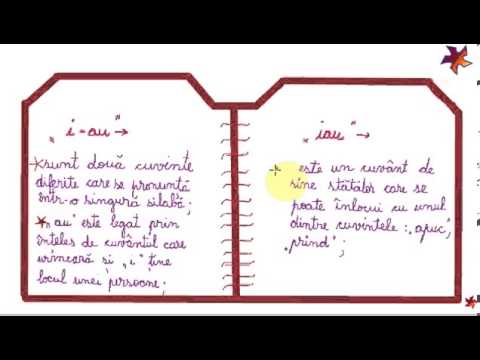 "i-au" →
sunt două cuvinte
diferite care se pronunță
într-o singură silabă;
"au" este legat prin
înțeles de cuvântul care
urmează și "i" ține
locul unei persoane;
"iau" →
este un cuvânt de
sine stătător care se
poate înlocui cu unul
dintre cuvintele: "apuc",
"prind";